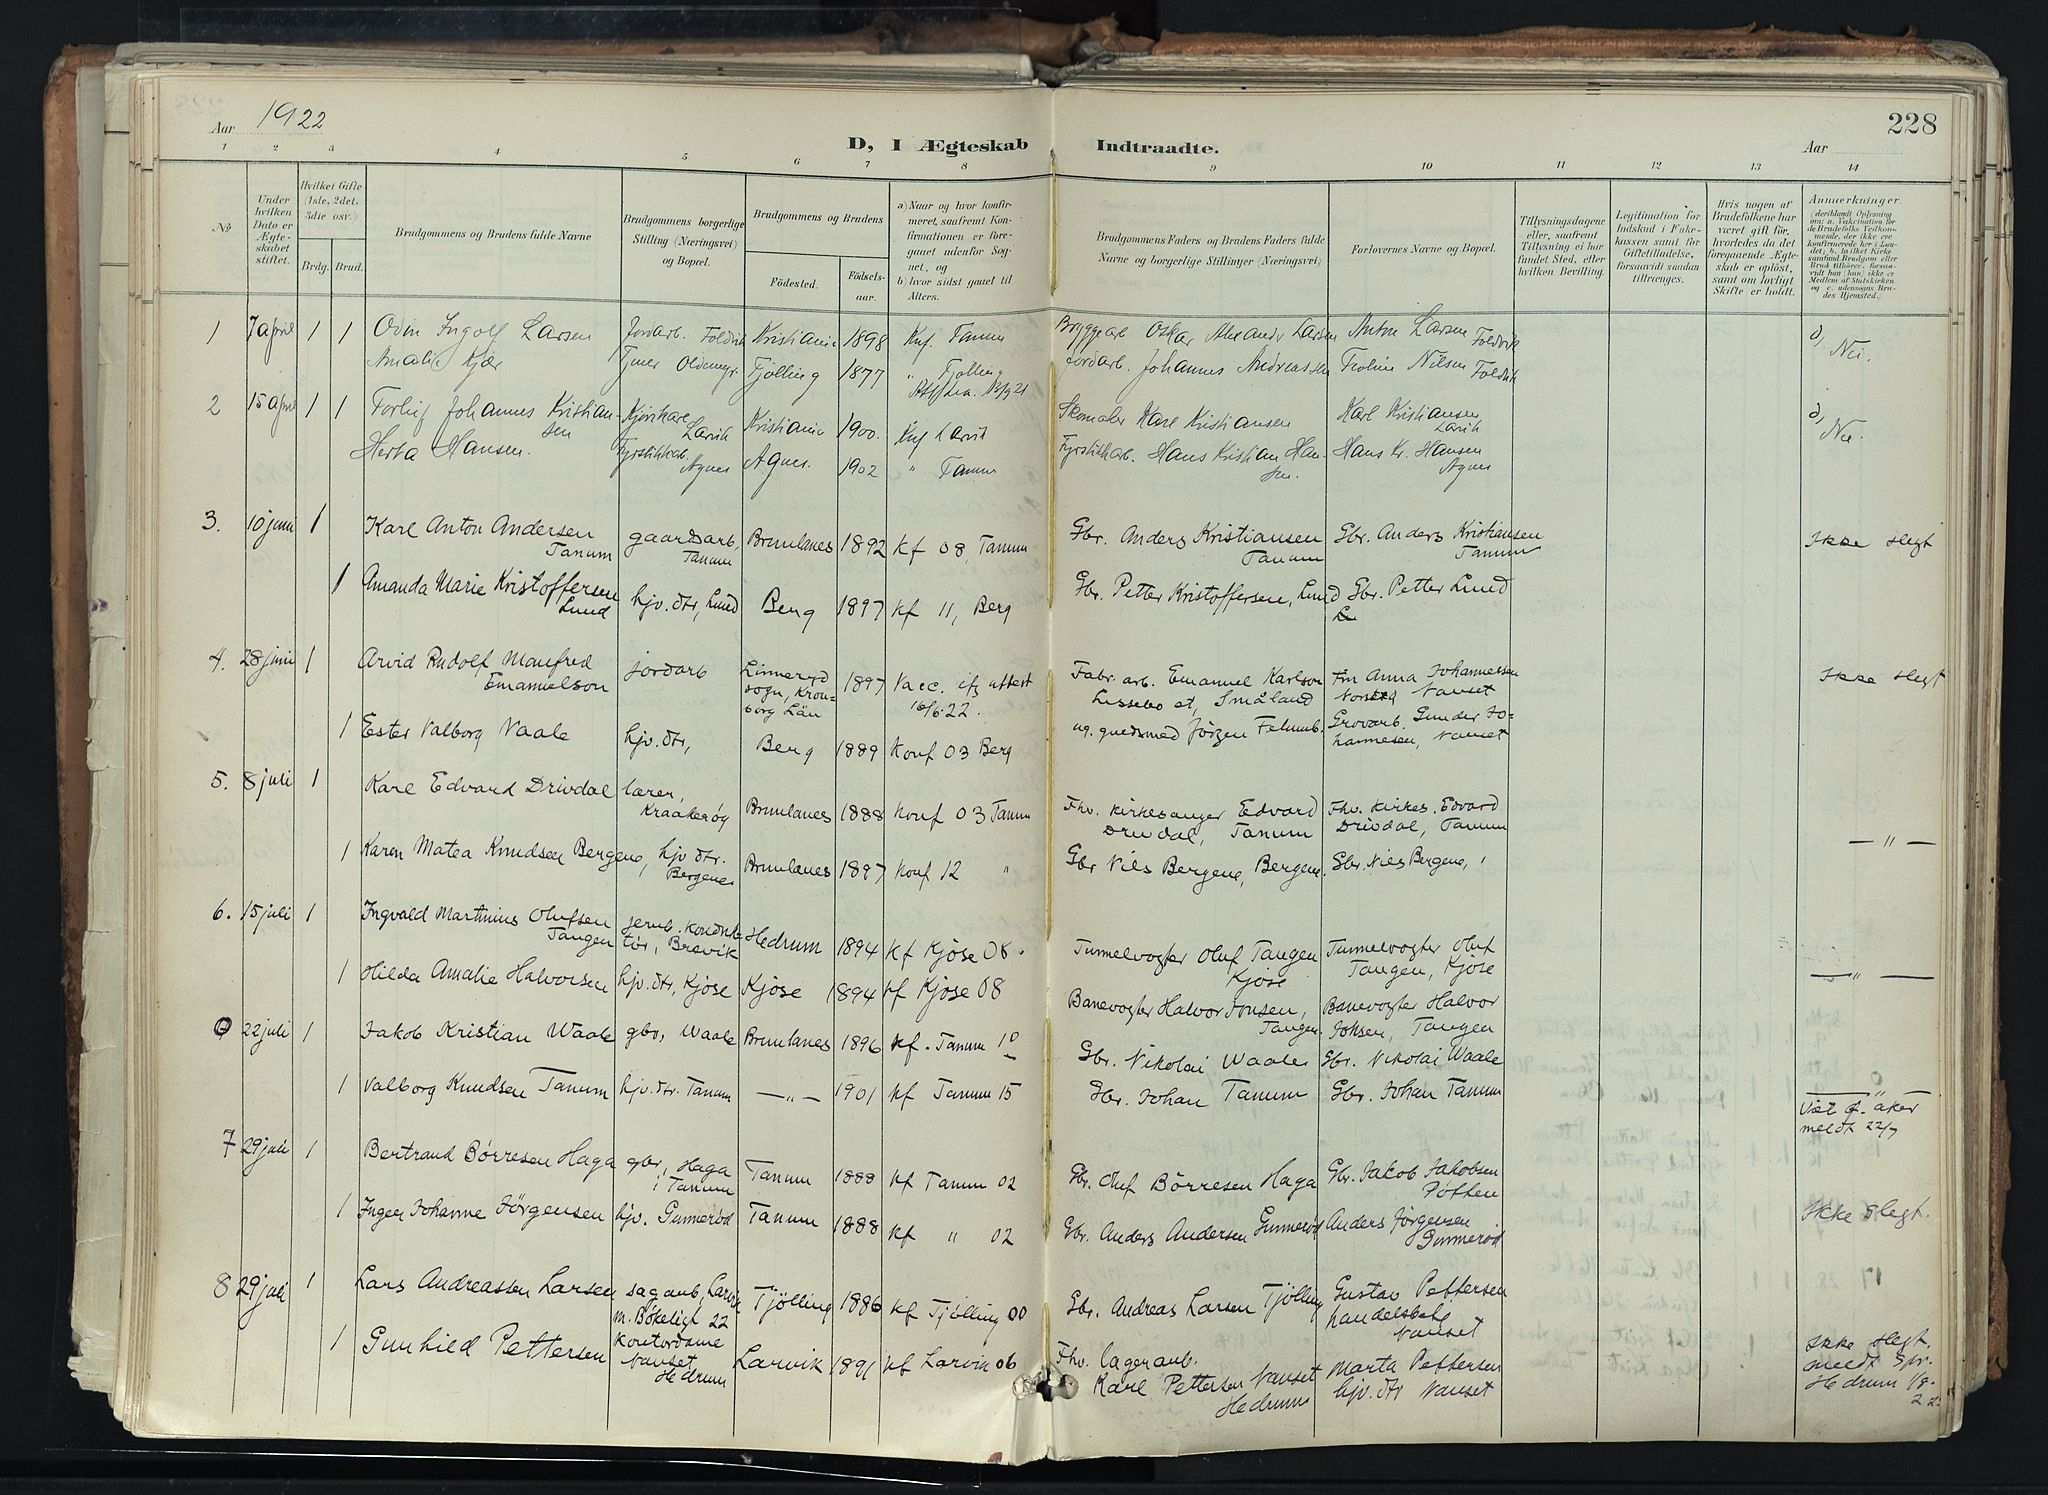 Aar 1922
D, I Ægteskab Indtraadte.
Aar
228
1 2 3 4 5 6 7 8 9 10 11 12 13 14
№
Under hvilken Dato er Ægteskabet stiftet.
Hvilket Gifte (1ste, 2det, 3die osv.)
Brdg. Brud.
Brudgommens og Brudens fulde Navne
Brudgommens borgerlige Stilling (Næringsvei) og Bopæl.
Brudgommens og Brudens
Födested.
Födselsaar.
a) Naar og hvor konfirmeret, saafremt Konfirmationen er foregaaet udenfor Sognet, og b) hvor sidst gaaet til Alters.
Brudgommens Faders og Brudens Faders fulde Navne og borgerlige Stillinger (Næringsvei)
Forlovernes Navne og Bopæl.
Tillysningsdagene eller, saafremt Tillysning ei har fundet Sted, efter hvilken Bevilling.
Legitimation for Indskud i Enkekassen samt for Giftetilladelse, forsaavidt saadan tiltrænges.
Hvis nogen af Brudefolkene har været gift før, hvorledes da det foregaaende Ægteskab er oplöst, samt om lovligt Skifte er holdt.
Anmerkninger
1 7 april 1 1 Odin Ingolf Larsen Jordarb. Foldvik Kristiania 1898 Knf. Tanum Bryggearb Oskar Alexandr Larsen Anton Larsen Foldvik d) Nei.
Amalie Kjær Tjener Oldengr. Tjölling 1877 " Tjölling Johannes Andreassen Teoline Nilsen Foldvik
2 15 april 1 1 Torleif Johannes Kristiansen Larvik Kristiania 1900. Knf Larvik Skomaker Karl Kristiansen Karl Kristiansen Larvik d) Nei.
Herta Hansen. Fyrstikkarb. Agnes Agnes. 1902 " Tanum Fyrstikkarb. Hans Kristian Hansen. Hans Kr. Hansen Agnes
3. 10 juni 1 Karl Anton Andersen Tanum gaardsarb, Tanum Brunlanes 1892 kf 08, Tanum Gbr. Anders Kristiansen Tanum Gbr. Anders Kristiansen Tanum Ikke slegt
1 Amanda Marie Kristoffersen Lund hjv. dtr, Lund Berg 1897 kf 11, Berg Gbr. Petter Kristoffersen, Lund Gbr. Petter Lund
4. 28 juni 1 Arvid Rudolf Manfred Emanuelson jordarb Linneryd sogn, Kronborg Län 1897 Vacc. ifg attest 16/6.22. Fabr. arb. Emanuel Karlson Lessebo st, Småland Frn Anna Johannessen Nanset Ikke slegt
1 Ester Valborg Vaale hjv. dtr, Berg 1889 Konf 03 Berg ug. guldsmed Jörgen Grovarb. Gunder Johannesen, Nanset
5. 8 juli 1 Karl Edvard Drivdal lærer, Kraakerøy Brunlanes 1888 Konf 03 Tanum Fhv. kirkesanger Edvard Drivdal, Tanum Fhv. kirkes. Edvard Drivdal, Tanum — " —
1 Karen Matea Knudsen Bergene, hjv dtr. Bergene Brunlanes 1897 Konf 12 " Gbr Nils Bergene, Bergene. Gbr. Nils Bergene,
6. 15 juli 1 Ingvald Martinius Olufsen Tangen jernb. konduktør, Brevik Hedrum 1894 kf Kjöse 08. Tunnelvogter Oluf Tangen Kjöse Tunnelvogter Oluf Tangen, Kjöse — " —
1 Hilda Amalie Halvorsen hjv. dtr, Kjöse Kjöse 1894 kf Kjöse 08 Banevogter Halvor Jonsen, Tangen. Banevogter Halvor Johsen, Tangen
22 juli 1 Jakob Kristian Waale gbr, Waale Brunlanes 1896 kf. Tanum 10 Gbr. Nikolai Waale Gbr. Nikolai Waale
1 Valborg Knudsen Tanum hjv. dtr. Tanum — " — 1901 kf Tanum 15 Gbr. Johan Tanum Gbr. Johan Tanum — " —
meldt 22/7
7 29 juli 1 Bertrand Børresen Haga gbr, Haga i Tanum Tanum 1888 kf Tanum 02 Gbr. Oluf Börresen Haga Gbr. Jakob Jakobsen Ikke slegt.
1 Inger Johanne Jörgensen hjv. Gunnerød Tanum 1888 kf " 02 Gbr. Anders Andersen Gunneröd Anders Jörgensen Gunneröd
8 29 juli 1 Lars Andreassen Larsen sagarb, Larvik m. Bökeligt 22 Tjölling 1886 kf Tjölling 00 Gbr. Andreas Larsen Tjölling Gustav Pettersen handelsbetj Nanset
1 Gunhild Pettersen kontordame Nanset Hedrum Larvik 1891 kf Larvik 06 Fhv. lagerarb. Karl Pettersen Nanset Hedrum Marta Pettersen hjv. dtr Nanset Ikke slegt. meldt Spr. Hedrum 1/8. 22.